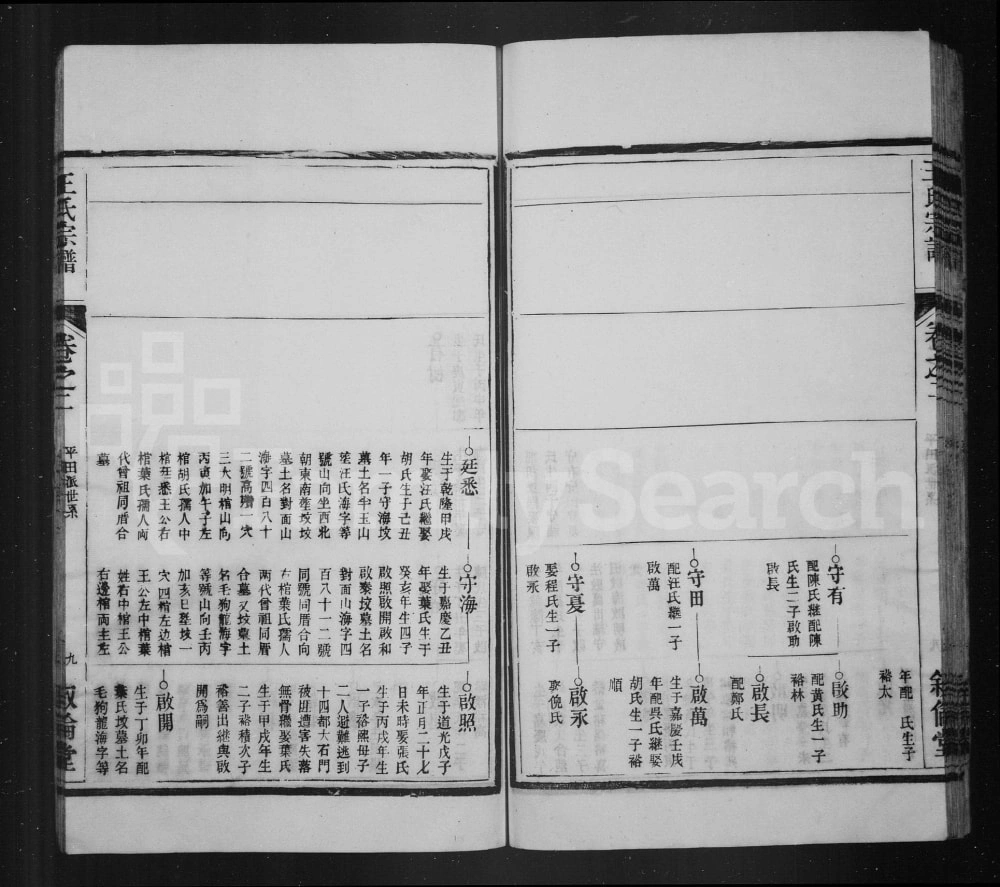 王氏宗譜
卷之二
敘倫堂
年配 氏生子
裕太
守有
配陳氏繼配陳
氏生二子啟助
啟長
啟助
配黃氏生一子
裕林
啟長
配鄭氏
守田
配汪氏繼一子
啟萬
啟萬
生于嘉慶壬戌
年配吳氏繼娶
胡氏生一子裕
順
守憂
娶程氏生一子
啟永
啟永
娶倪氏
廷悉
生于乾隆甲戌
年娶汪氏繼娶
胡氏生于己丑
年一子守海坟
萬土名半玉山
塋汪氏海字等
號山向坐西北
朝東南塋坟坟
墓土名對面山
海字四百八十
二號高塝一穴
三大明棺山向
丙東加午子左
棺胡氏孺人中
棺廷悉王公右
棺葉氏孺人兩
代曾祖同厝合
墓
守海
生于嘉慶乙丑
年娶葉氏生于
癸亥年生四子
啟照啟開啟和
啟泰坟墓土名
對面山海字四
百八十一二號
同號同厝合向
左棺葉氏孺人
兩代曾祖同厝
合墓又坟葉土
名毛狗龍海字
等號山向壬丙
加亥巳塋坟一
穴四棺左边棺
王公左中棺葉
姓右中棺王公
右邊棺兩主左
啟照
生于道光戊子
年正月二十七
日未時娶張氏
生于丙戌年生
一子裕熙毋子
二人避難逃到
十四都大石門
被匪遭害失落
無骨繼娶葉氏
生于甲戌年生
二子裕積次子
裕善出継與啟
開爲嗣
啟開
生于丁卯年配
葉氏坟墓土名
毛狗龍海字等
王氏宗譜
卷之二
平田派世系
九
敘倫堂